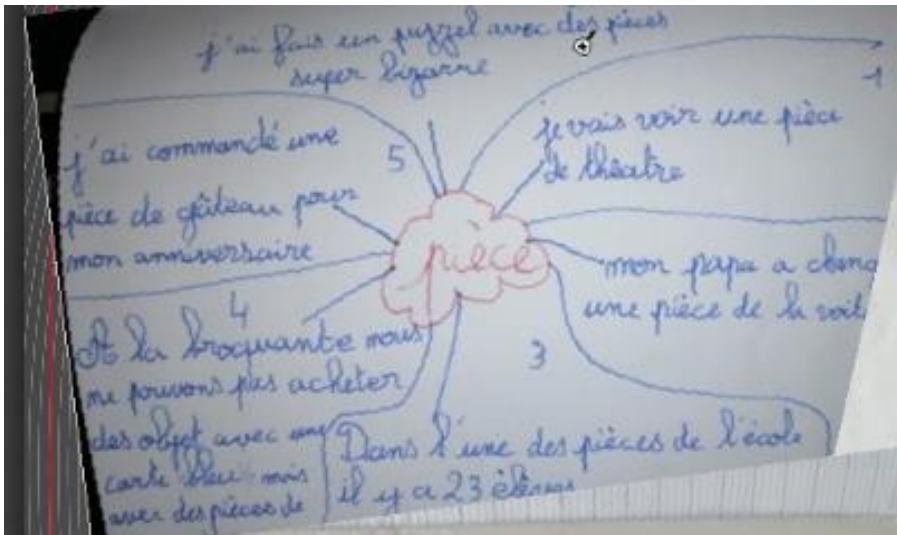 j'ai fais un puzzel avec des pièces
super bizarre
1
je vais voir une pièce
de théatre
mon papa a chang
une pièce de la voit
3
Dans l'une des pièces de l'école
il y a 23 élèves
4
A la broquante nous
ne pouvons pas acheter
des objet avec une
carte bleu mais
avec des pièces de
5
j'ai commandé une
pièce de gâteau pour
mon anniversaire
pièce